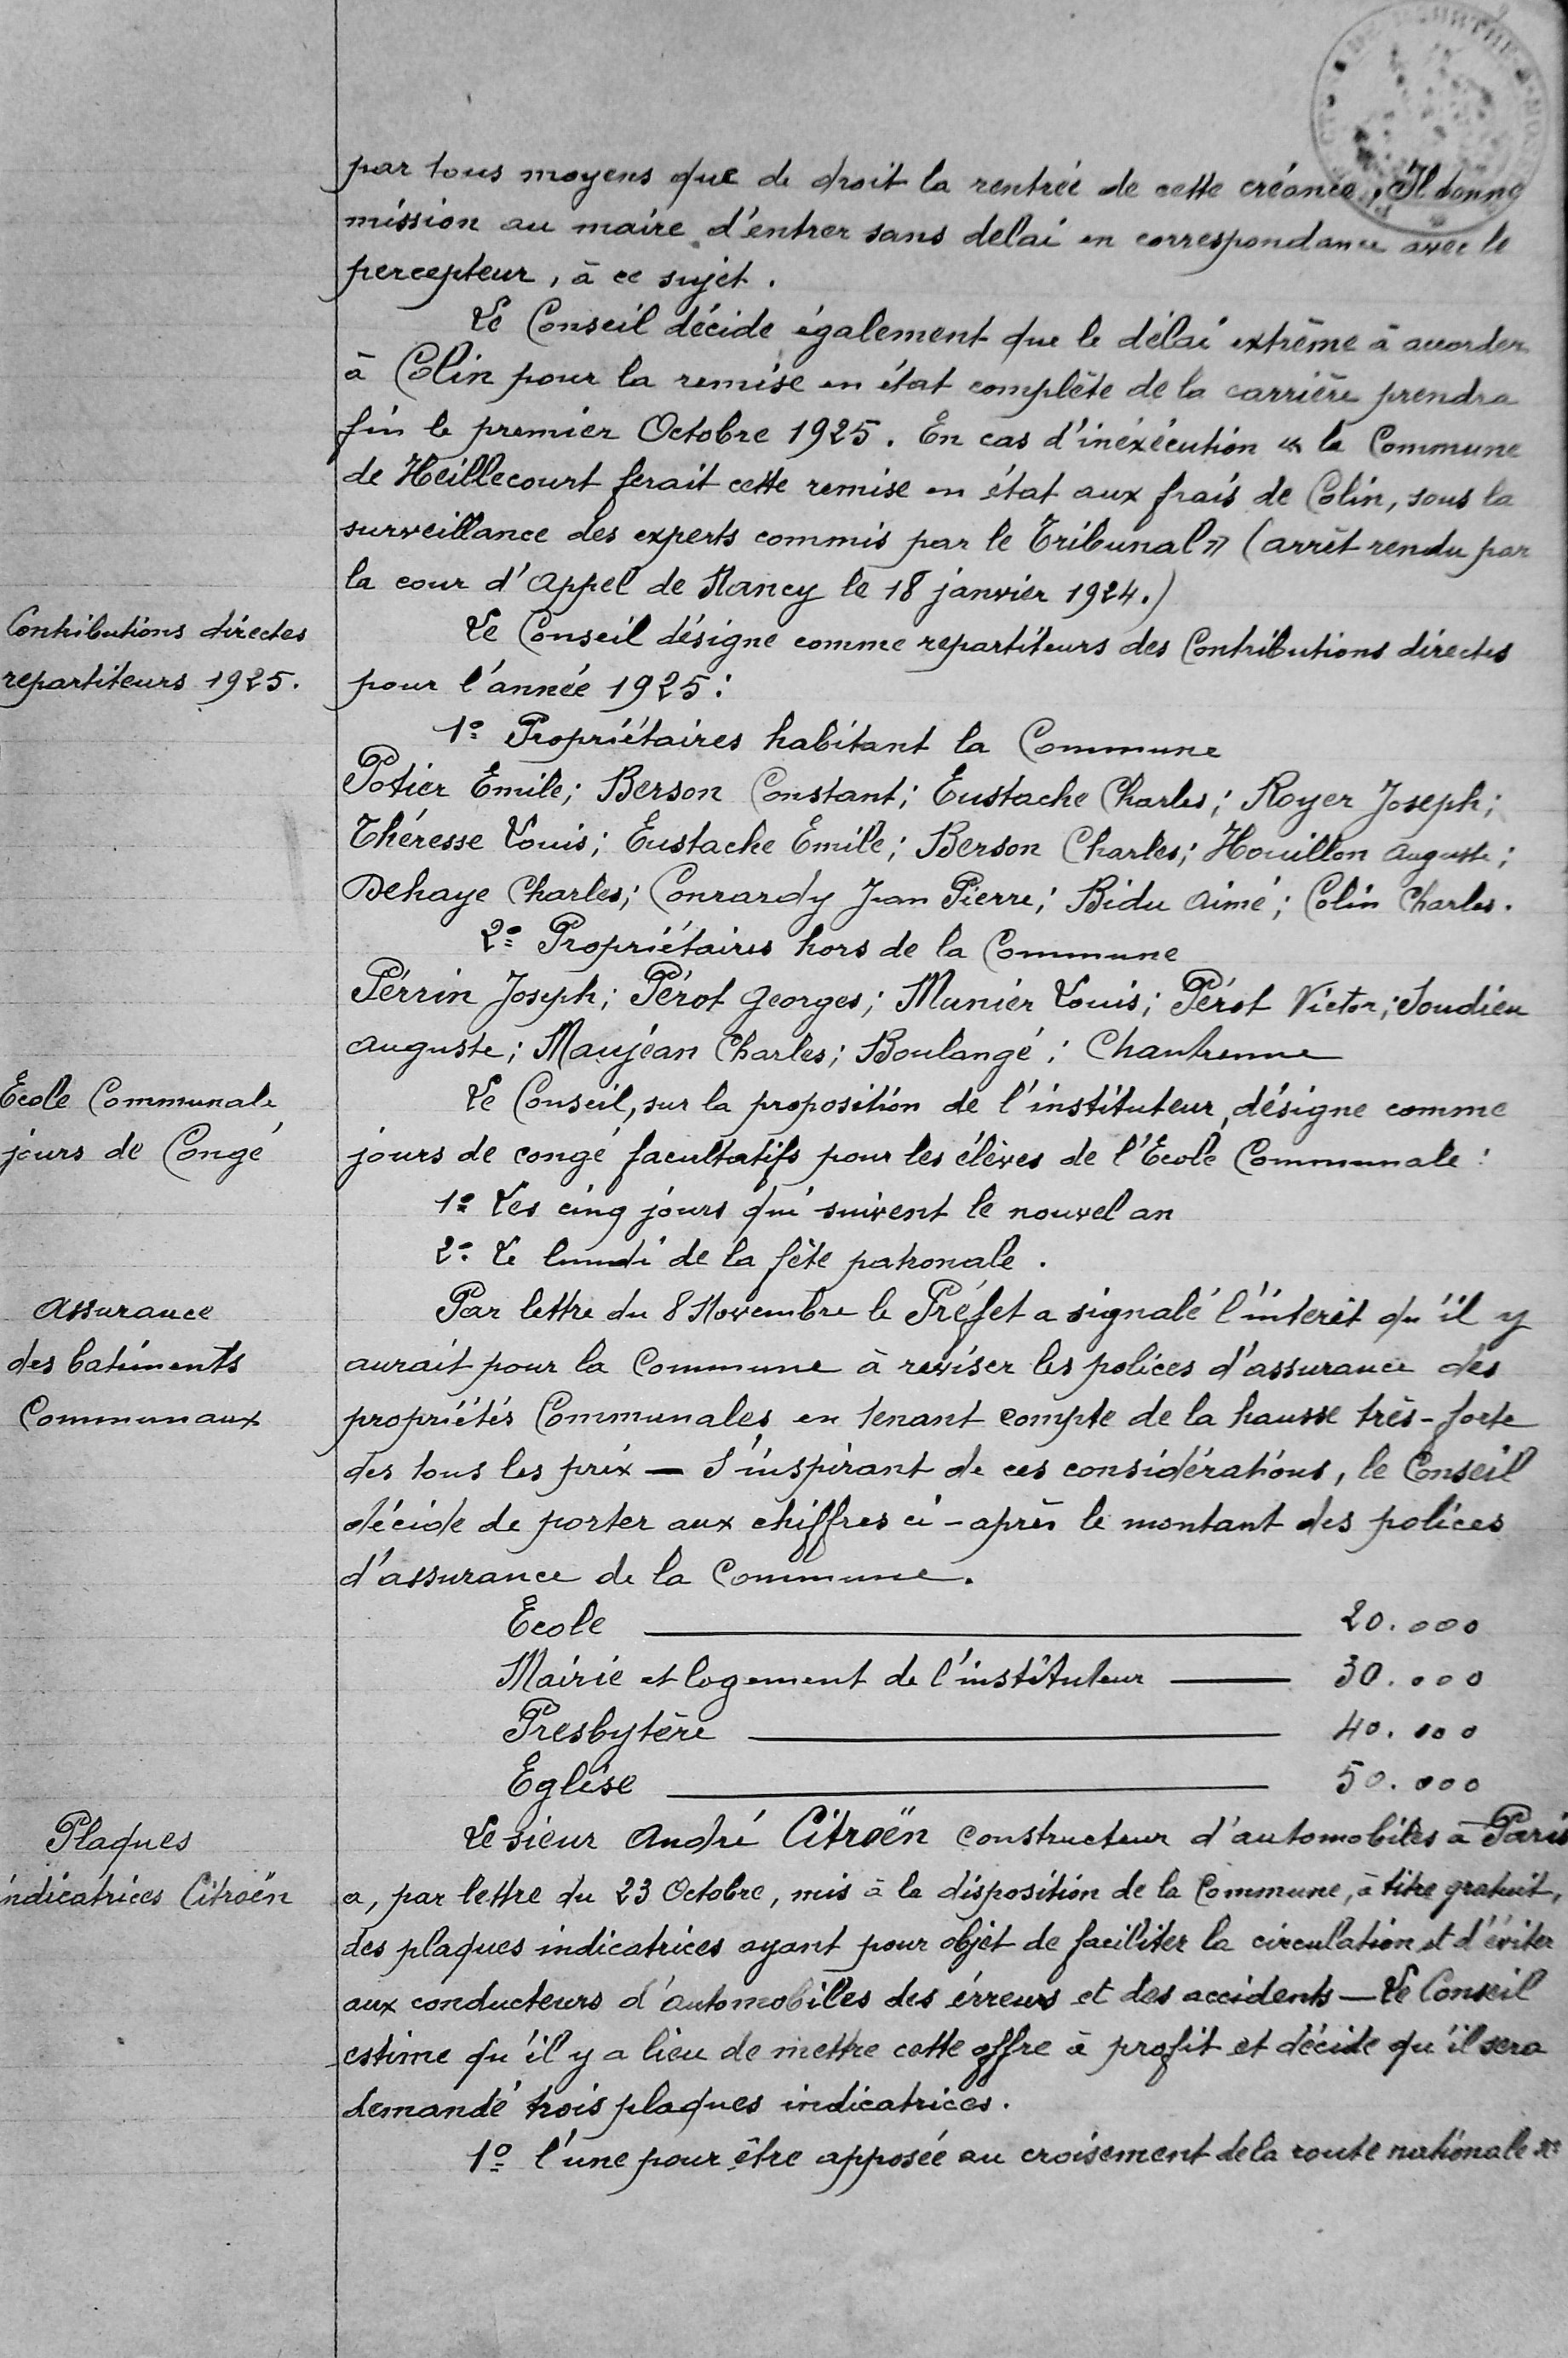 par tous moyens que de droit la rentrée de cette créance, Il donne
mission au maire d'entrer sans delai en correspondance avec le
percepteur, à ce sujet.
Le Conseil décide également que le délai extrême à accorder
à Colin pour la remise en état complète de la carrière prendra
fin le premier Octobre 1925. En cas d'inéxécution « la Commune
de Heillecourt ferait cette remise en état aux frais de Colin, sous la
surveillance des experts commis par le Tribunal » (arrêt rendu par
la cour d'Appel de Nancy le 18 janvier 1924.)
Contributions directes
repartiteurs 1925.
Le Conseil désigne comme repartiteurs des Contributions directes
pour l'année 1925:
1º Propriétaires habitant la Commune
Potier Emile; Berson Constant; Eustache Charles; Royer Joseph;
Théresse Louis; Eustache Emile; Berson Charles; Houillon Auguste;
Dehaye Charles; Conrardy Jean Pierre; Bidu Aimé; Colin Charles.
2º Propriétaires hors de la Commune
Pérrin Joseph; Pérot Georges; Munier Louis; Pérot Victor; Soudieu
Auguste; Maujéan Charles; Boulangé; Chantrenne
Ecole Communale
jours de Congé
Le Conseil, sur la proposition de l'instituteur, désigne comme
jours de congé facultatifs pour les élèves de l'Ecole Communale:
1º Les cinq jours qui suivent le nouvel an
2º Le lundi de la fête patronale.
Assurance
des batiments
Communaux
Par lettre du 8 Novembre le Préfet a signalé l'interêt qu'il y
aurait pour la Commune à reviser les polices d'assurance des
propriétés Communales en tenant compte de la hausse très-forte
des tous les prix — S'inspirant de ces considérations, le Conseil
décide de porter aux chiffres ci-après le montant des polices
d'assurance de la Commune.
Ecole 20.000
Mairie et logement de l'instituteur 30.000
Presbytère 40.000
Eglise 50.000
Plaques
indicatrices Citroën
Le sieur André Citroën constructeur d'automobiles à Paris
a, par lettre du 23 Octobre, mis à la disposition de la Commune, à titre gratuit,
des plaques indicatrices ayant pour objet de faciliter la circulation et d'éviter
aux conducteurs d'automobiles des érreurs et des accidents — Le Conseil
estime qu'il y a lieu de mettre cette offre à profit et décide qu'il sera
demandé trois plaques indicatrices.
1º l'une pour être apposée au croisement de la route nationale Nº